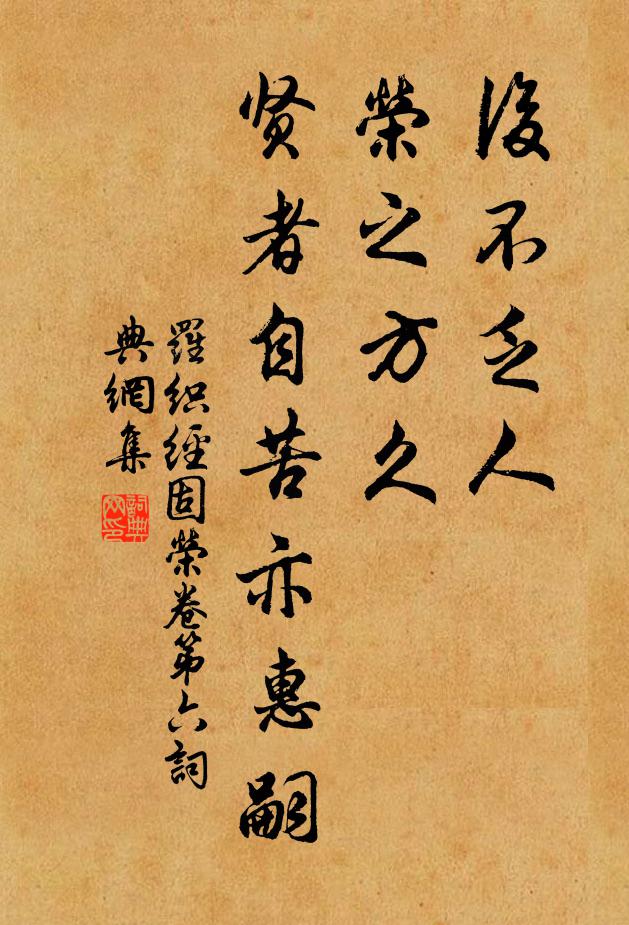 後不乏人
榮之方久
贤者自苦亦惠嗣
羅织經固榮卷第六詞
典網集
詞典網印